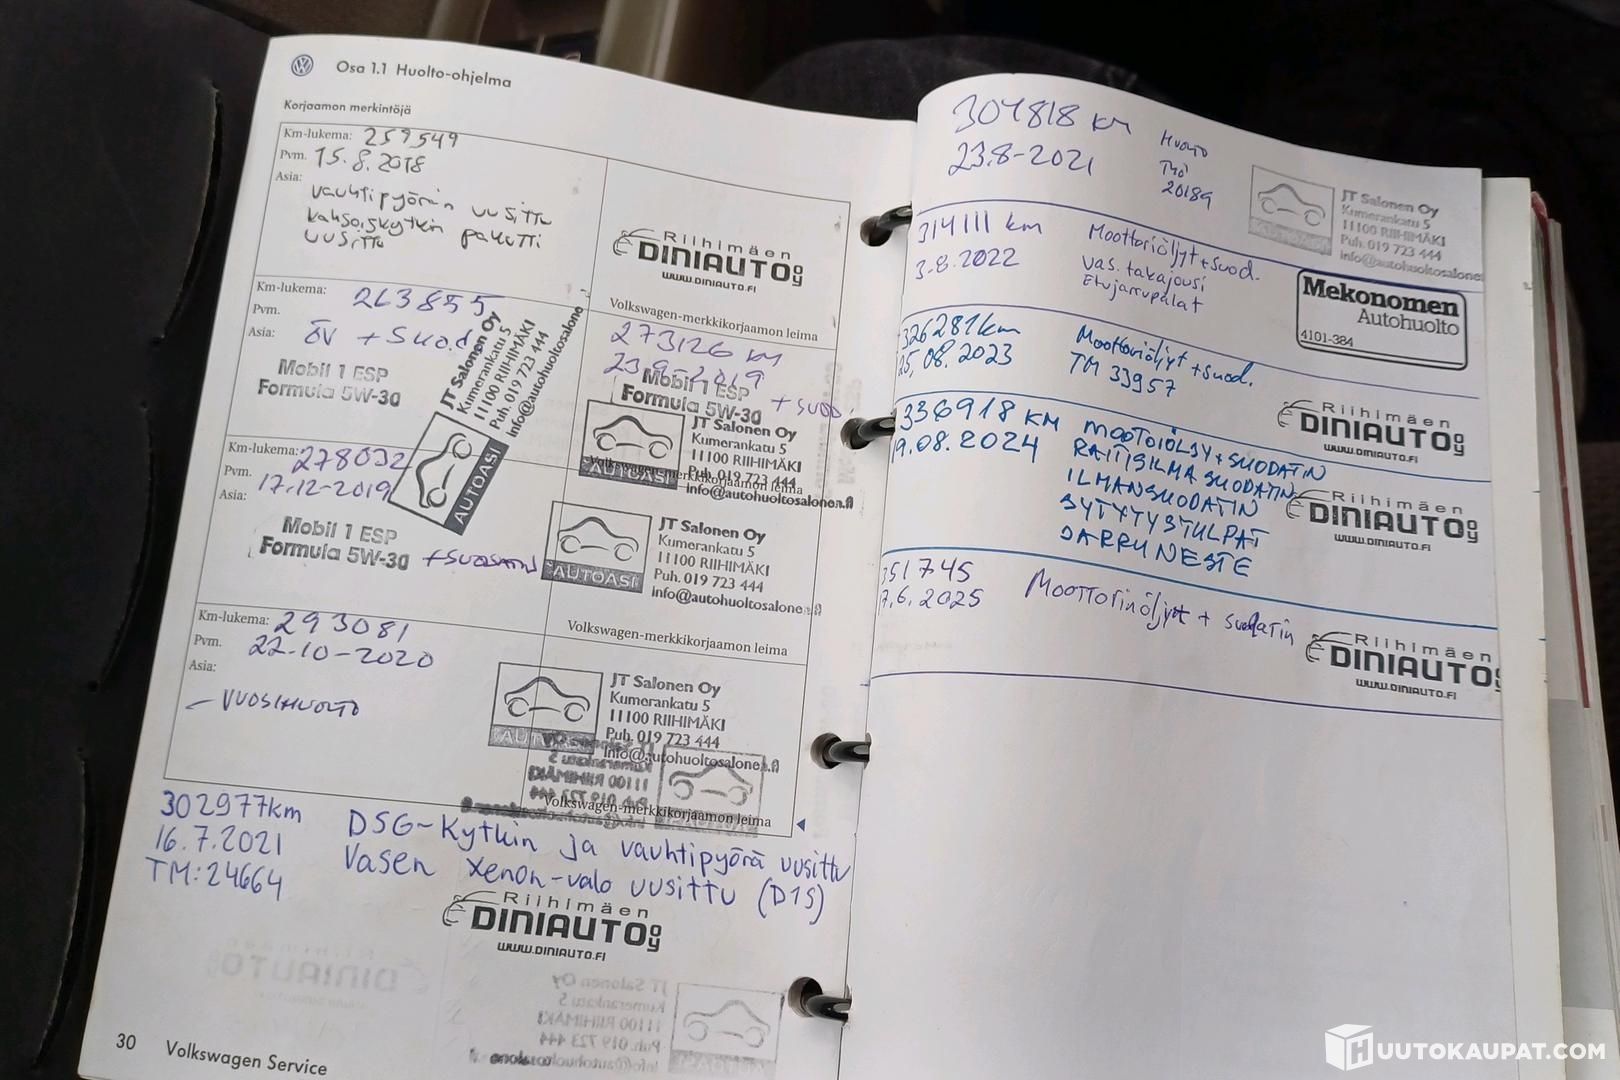 Osa 1.1 Huolto-ohjelma
Korjaamon merkintöjä
Km-lukema: 259549
Pvm. 15.8.2018
Asia:
vauhtipyörän uusittu
kaksoiskytkin paketti
uusittu
Riihimäen
DINIAUTO OY
WWW.DINIAUTO.FI
Volkswagen-merkkikorjaamon leima
Km-lukema: 263855
Pvm.
Asia: ÖV + Suod
Mobil 1 ESP
Formula 5W-30
JT Salonen Oy
Kumerankatu 5
11100 RIIHIMÄKI
Puh. 019 723 444
info@autohuoltosalone
AUTOASI
273126 KM
23.9-2019
Mobil 1 ESP
Formula 5W-30 + suod.
JT Salonen Oy
Kumerankatu 5
11100 RIIHIMÄKI
Puh. 019 723 444
info@autohuoltosalonen.fi
AUTOASI
Volkswagen-merkkikorjaamon leima
Km-lukema: 278032
Pvm. 17.12-2019
Asia:
Mobil 1 ESP
Formula 5W-30
JT Salonen Oy
Kumerankatu 5
11100 RIIHIMÄKI
Puh. 019 723 444
info@autohuoltosalone
AUTOASI
Volkswagen-merkkikorjaamon leima
Km-lukema: 293081
Pvm. 22-10-2020
Asia:
– VUOSIHUOLTO
JT Salonen Oy
Kumerankatu 5
11100 RIIHIMÄKI
Puh. 019 723 444
info@autohuoltosalonen.fi
Volkswagen-merkkikorjaamon leima
302977km
16.7.2021
TM: 24664
DSG-Kytkin ja vauhtipyörä uusittu
Vasen xenon-valo uusittu (D1S)
Riihimäen
DINIAUTO OY
WWW.DINIAUTO.FI
30 Volkswagen Service
304818 KM
23.8-2021
Huolto
Työ
20189
JT Salonen Oy
Kumerankatu 5
11100 RIIHIMÄKI
Puh. 019 723 444
info@autohuoltosalone
314111 km
3.8.2022
Moottoriöljyt+suod.
vas. takajousi
Etujarrupalat
Mekonomen
Autohuolto
4101-384
326281km
25.08.2023
Moottoriöljyt +suod.
TM 33957
Riihimäen
DINIAUTO OY
WWW.DINIAUTO.FI
336918 KM
19.08.2024
MOOTOIÖLJY+SUODATIN
RAITISILMASUODATIN
ILMANSUODATIN
SYTYTYSTULPAT
JARRUNESTE
Riihimäen
DINIAUTO OY
WWW.DINIAUTO.FI
351745
7.6.2025
Moottorinöljyt + suodatin
Riihimäen
DINIAUTO
WWW.DINIAUTO.FI
HUUTOKAUPAT.COM